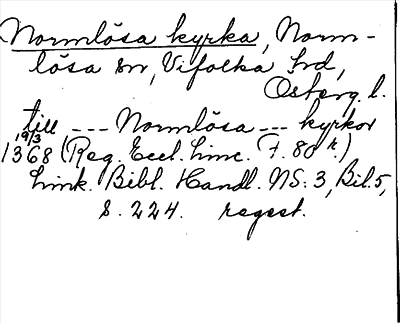 Normlösa kyrka, Norm-
lösa sn, Vifolka hd,
Österg. l.
till --- Normlösa --- kyrkor
19/3
1368 (Reg. Eccl. Linc. F. 80 r.)
Link. Bibl. Handl. NS: 3, Bil. 5,
S. 224. regest.